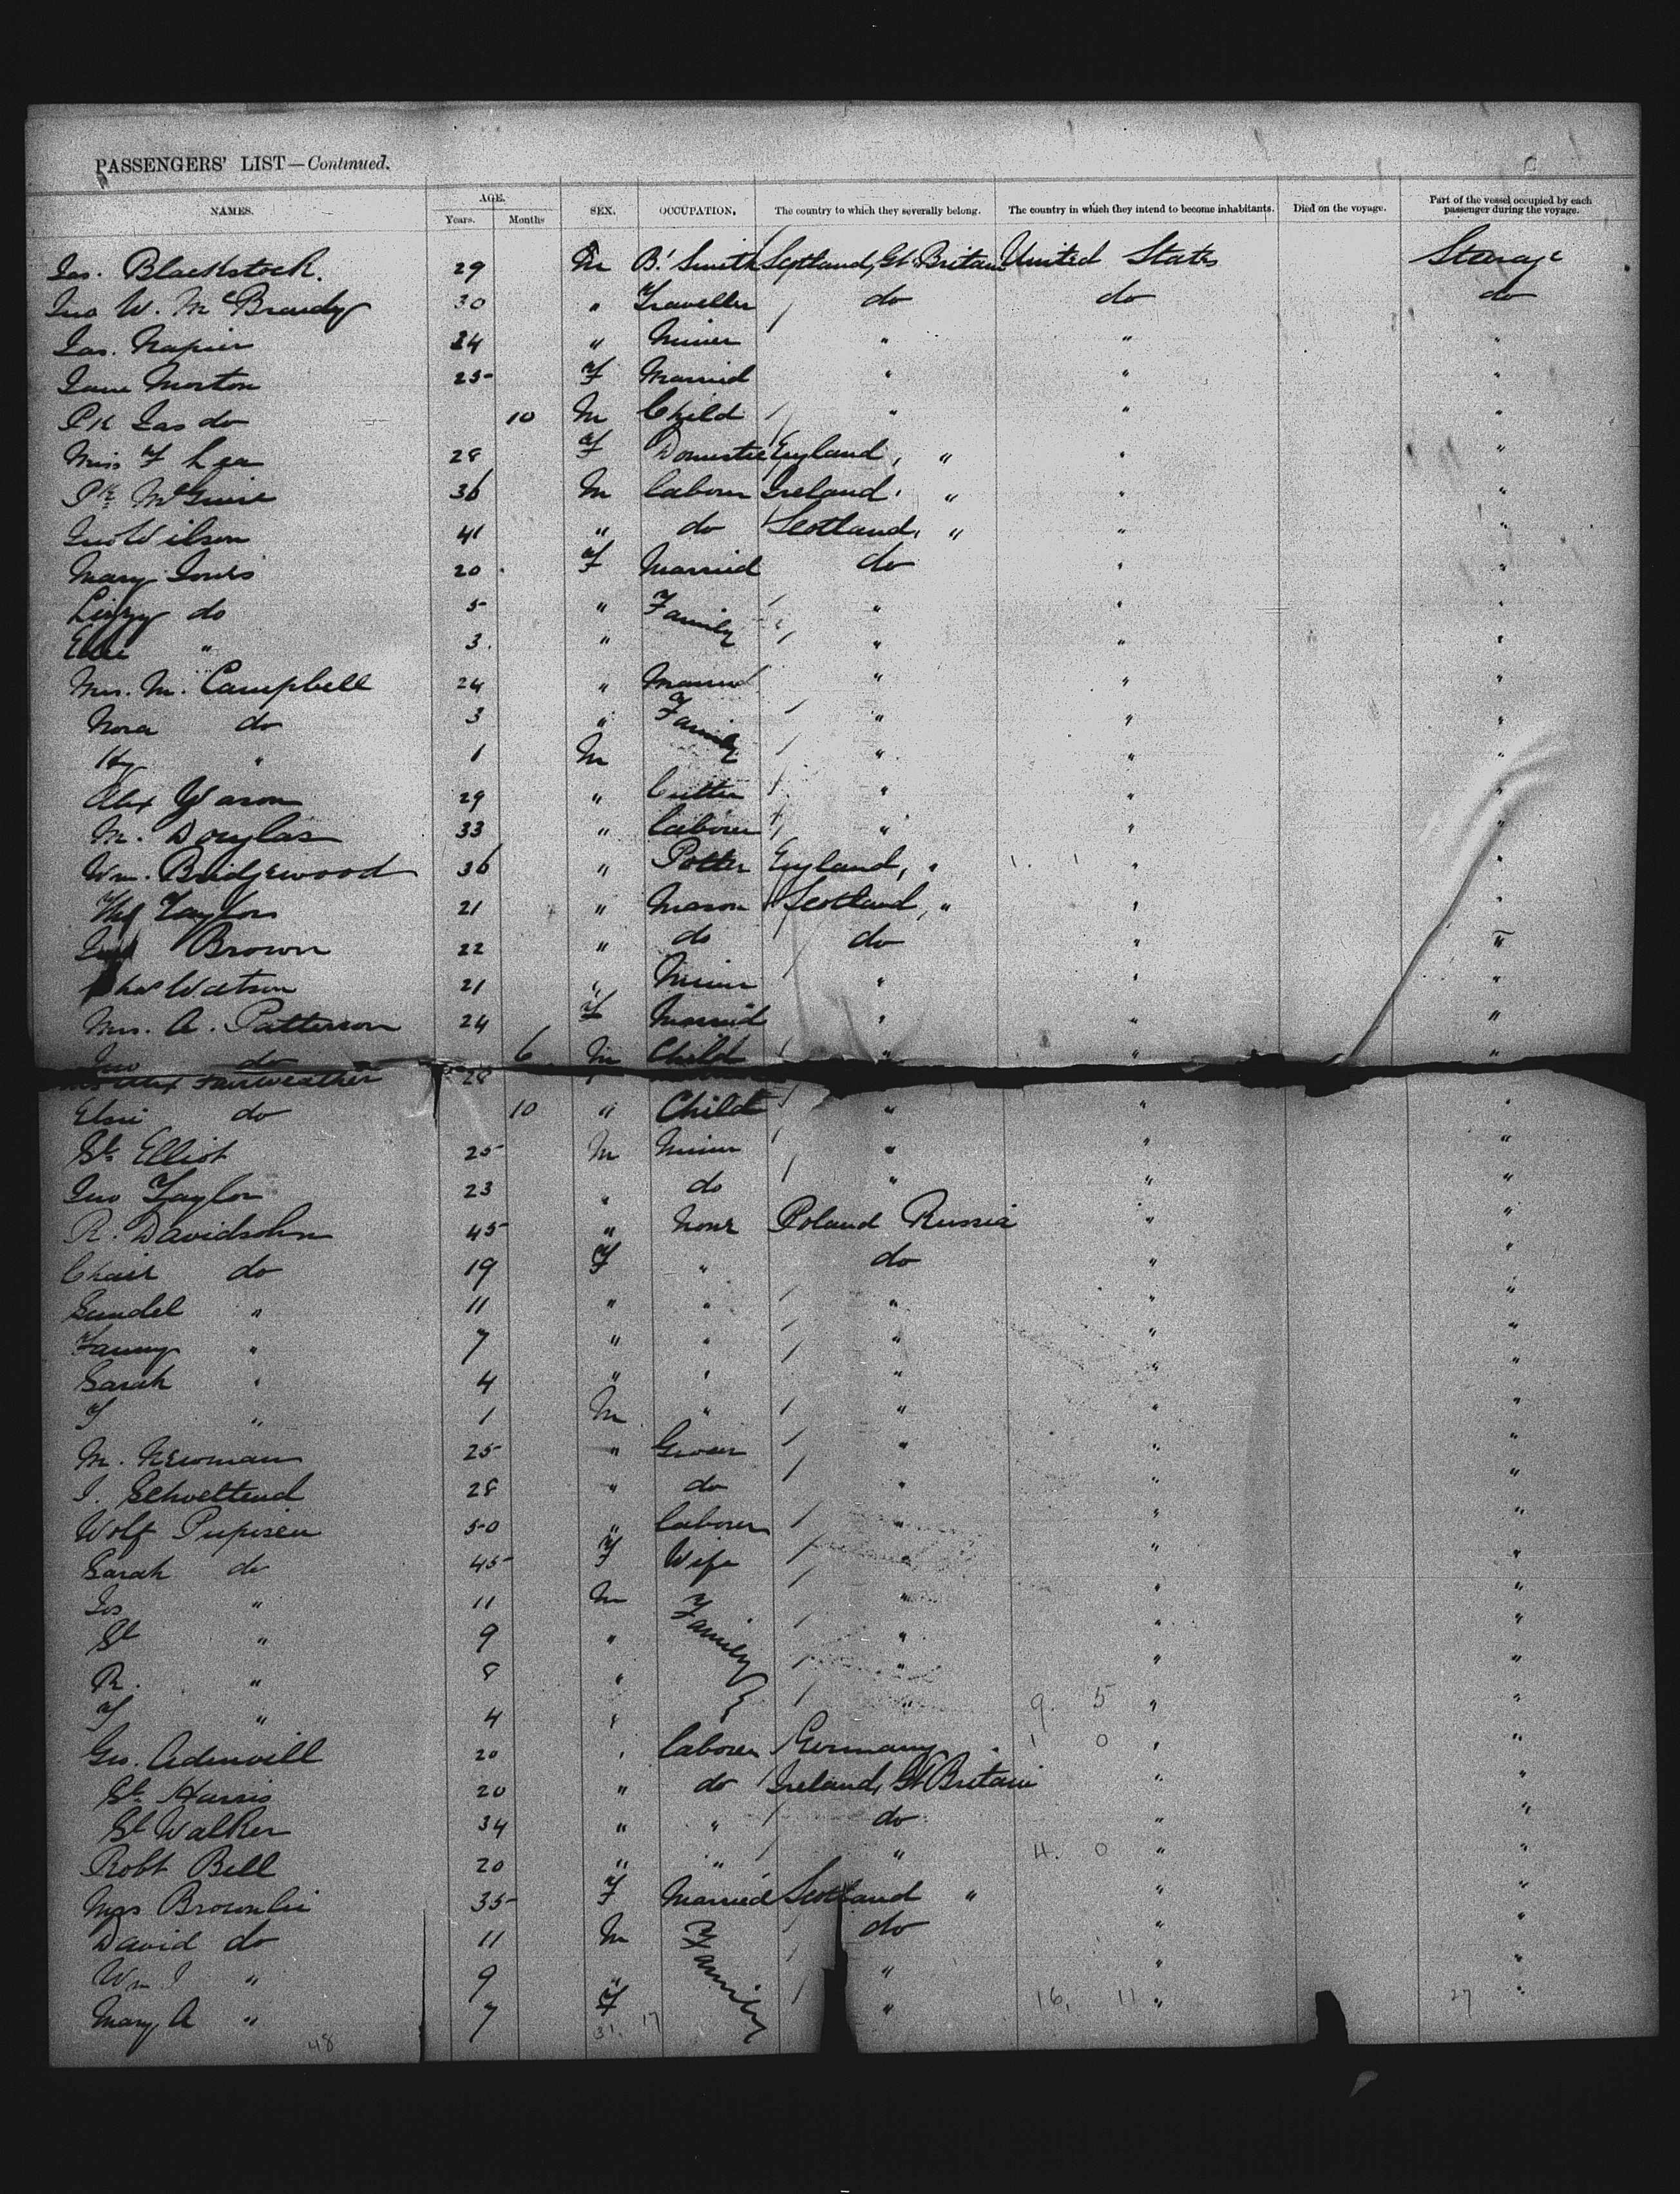 PASSENGERS' LIST—Continued.
NAMES. AGE. Years. Months SEX. OCCUPATION. The country to which they severally belong. The country in which they intend to become inhabitants. Died on the voyage. Part of the vessel occupied by each passenger during the voyage.
Jas. Blackstock. 29 M B. Smith Scotland, Gt. Britain United States Steerage
Jno W. McBrardy 30 " Traveller do do do
Jas. Napier 24 " Miner " " "
Jane Morton 25 F Married " " "
Pk Jas do 10 M Child " " "
Miss F Lea 28 F Domestic England, " " "
Pk McGuire 36 M Laborer Ireland, " " "
Jno Wilson 41 " do Scotland, " " "
Mary Innes 20 F Married do " "
Lizzy do 5 " Family " " "
3 " " " "
Mrs. M. Campbell 24 " Married " " "
Nora do 3 " Family " " "
Hy " 1 M " " "
Alex 29 " Cutter " " "
M. Douglas 33 " Laborer " " "
Wm. Bridgewood 36 " Potter England, " " "
Taylor 21 " Mason Scotland, " " "
Brown 22 " do do " "
Watson 21 " Miner " " "
Mrs. A. Patterson 24 F Married " " "
Jno do 6 M Child " " "
Alex Fairweather 28
Elsie do 10 " Child " " "
Elliot 25 M Miner " " "
Jno Taylor 23 " do " " "
R. Davidsohn 45 " None Poland Russia " "
do 19 F " do " "
Gundel " 11 " " " " "
Fanny " 7 " " " " "
Sarah " 4 " " " " "
" 1 M " " " "
M. Newman 25 " Grocer " " "
28 " do " " "
Wolf 50 " Laborer " " "
Sarah do 45 F Wife " " "
" 11 M Family " " "
" 9 " " " "
R. " 8 " " " "
" 4 " " 9. 5 " "
Geo. 20 " Laborer Germany 1 0 " "
Harris 20 " do Ireland, Gt Britain " "
Walker 34 " " do " "
Robt Bell 20 " " " 4. 0 " "
Mrs Brownlie 35 F Married Scotland " " "
David do 11 M Family do " "
Wm J " 9 " " " "
Mary A " 7 F " 16, 11 " 27 "
48 31. 17